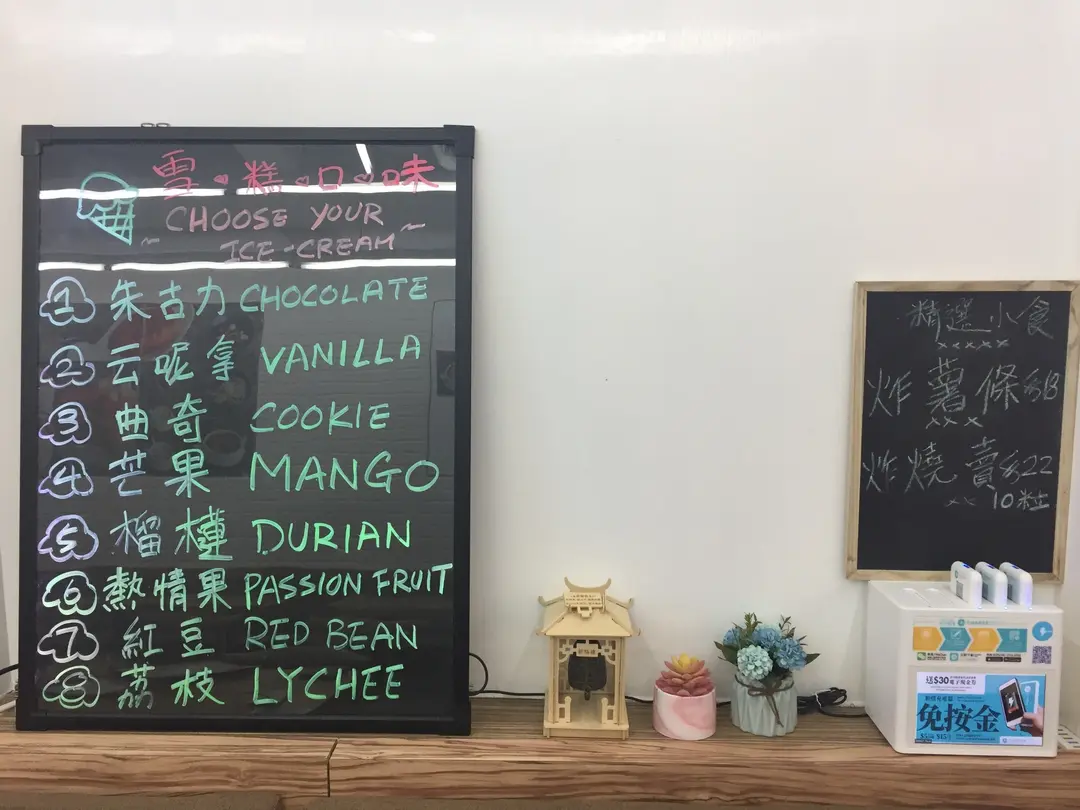 雪糕口味
CHOOSE YOUR
ICE-CREAM
1 朱古力 CHOCOLATE
2 云呢拿 VANILLA
3 曲奇 COOKIE
4 芒果 MANGO
5 榴槤 DURIAN
6 熱情果 PASSION FRUIT
7 紅豆 RED BEAN
8 荔枝 LYCHEE
精選小食
炸薯條$18
炸燒賣$22
10粒
送$30電子現金券
免按金